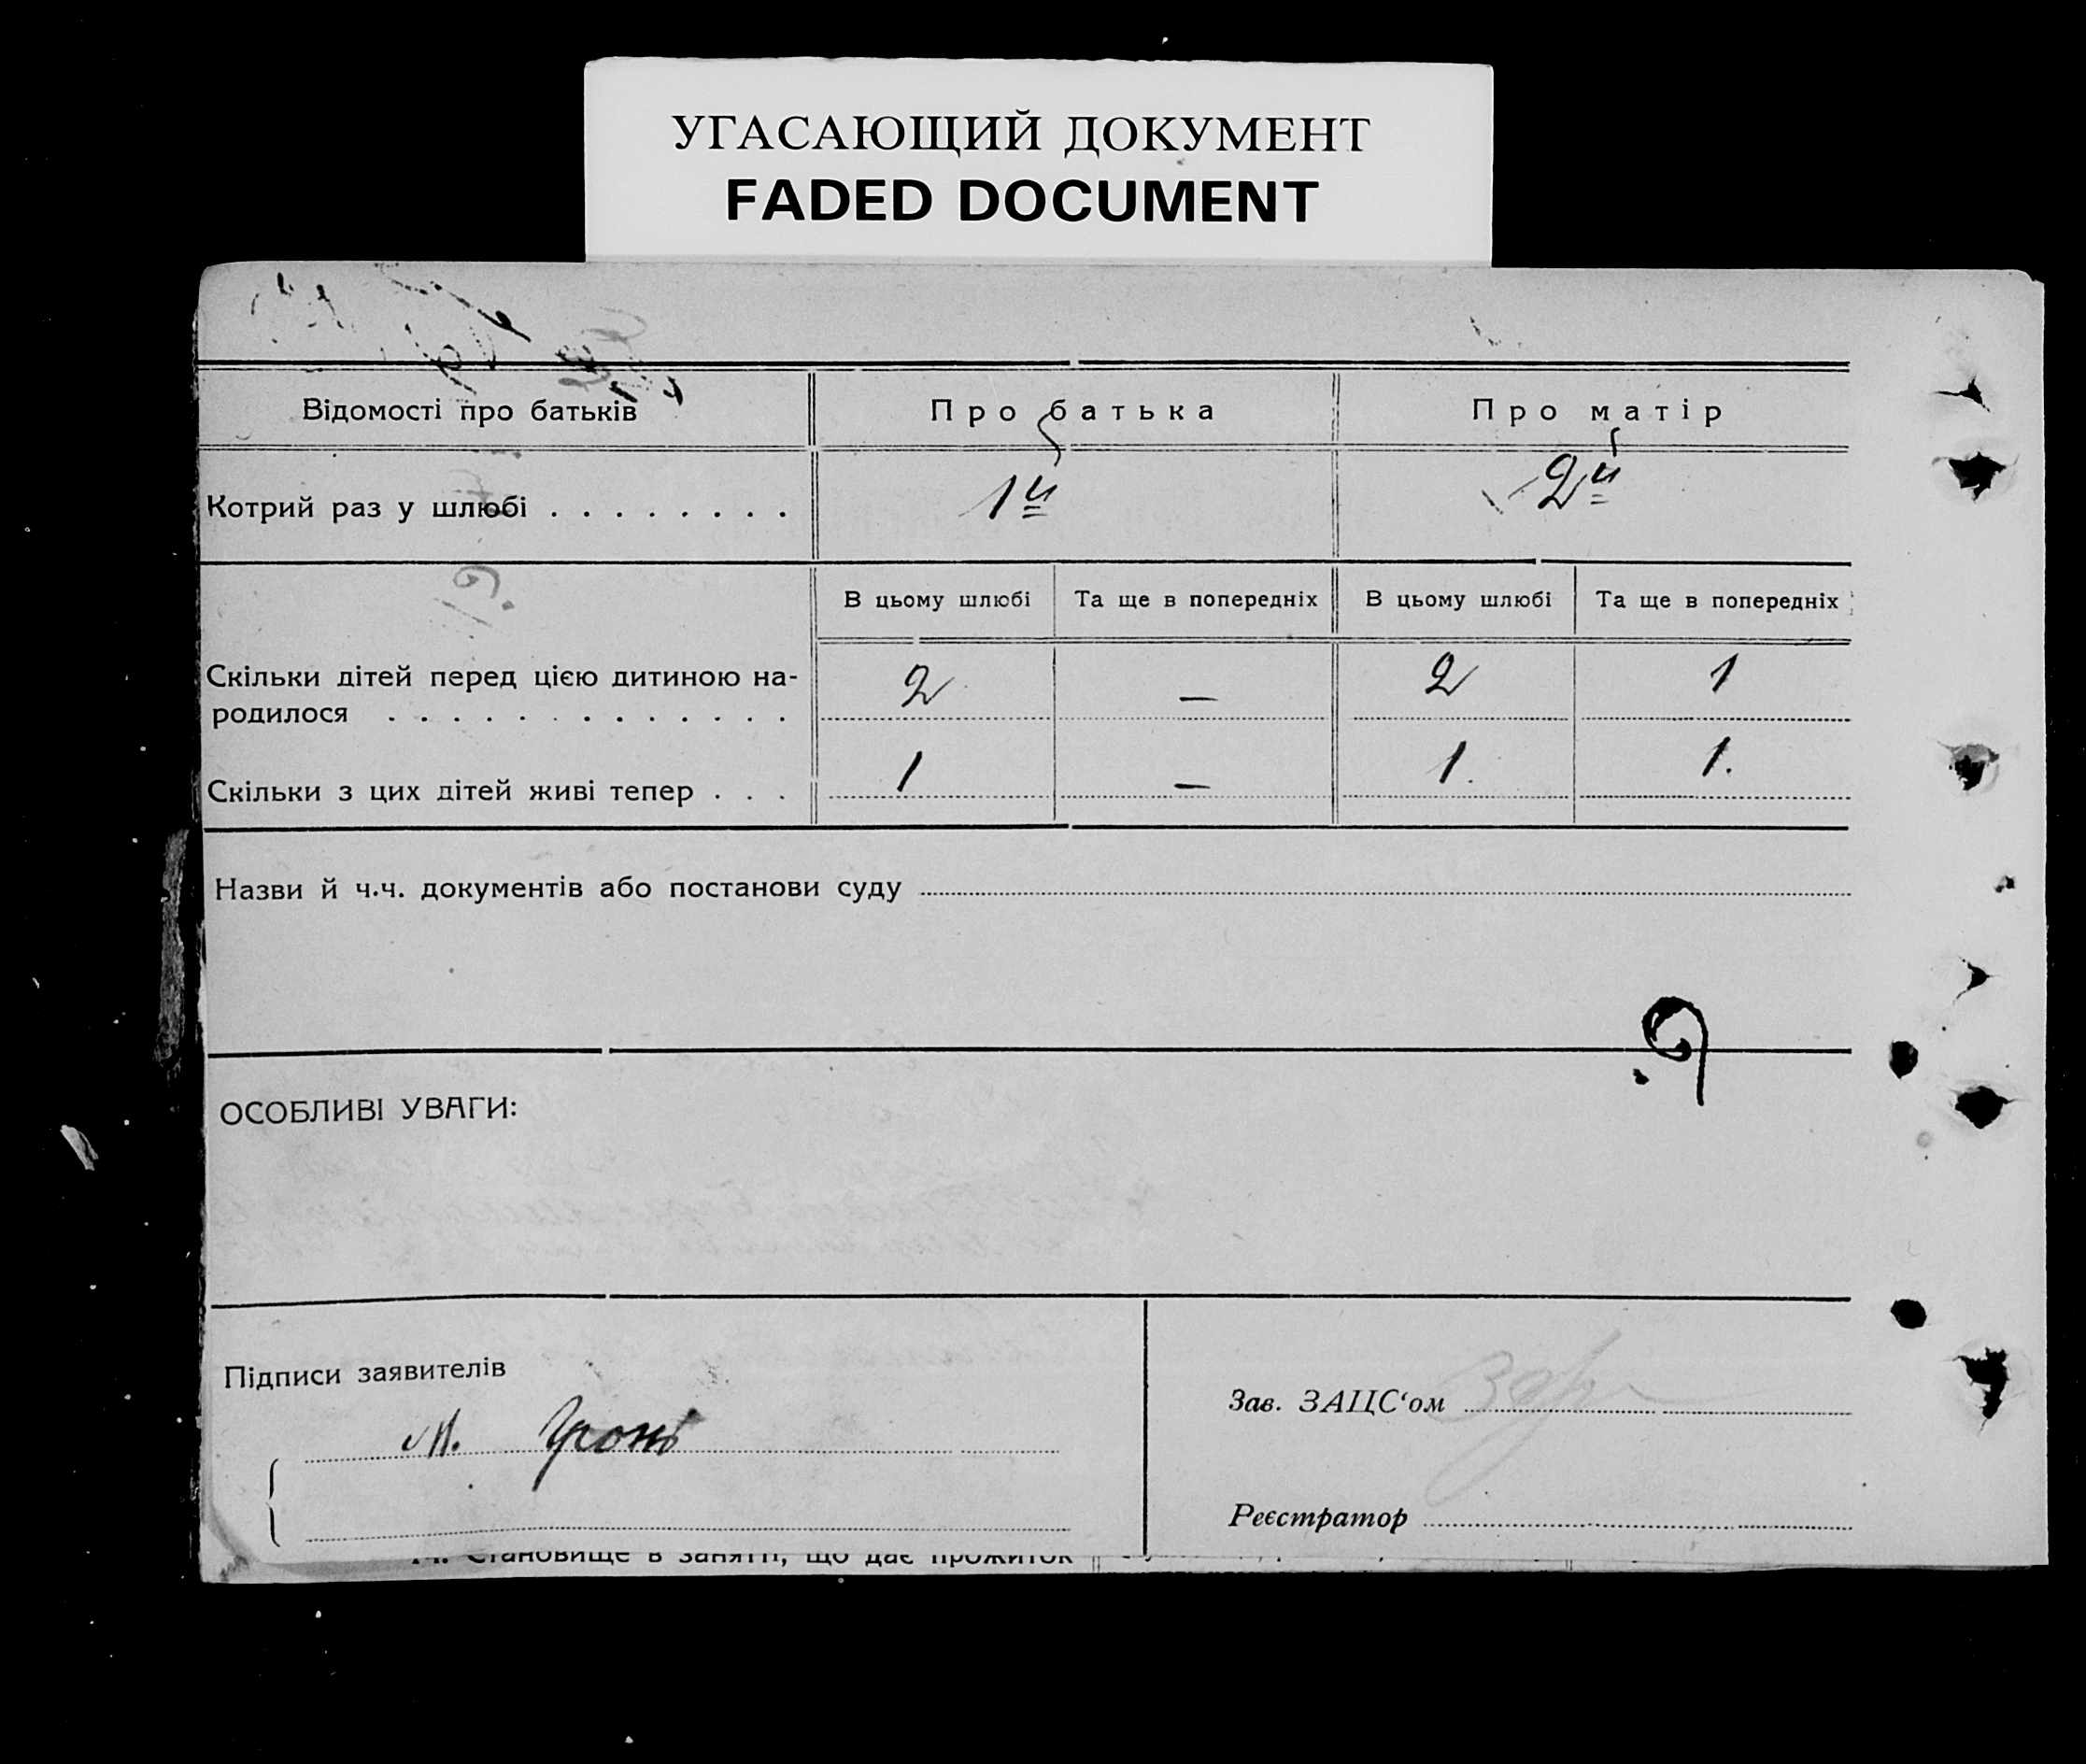 УГАСАЮЩИЙ ДОКУМЕНТ
FADED DOCUMENT
Відомості про батьків Про батька Про матір
Котрий раз у шлюбі . . . . . . . . 1й 2й
В цьому шлюбі Та ще в попередніх В цьому шлюбі Та ще в попередніх
Скільки дітей перед цією дитиною на-
родилося . . . . . . . . . . . . . 2 — 2 1
Скільки з цих дітей живі тепер . . . 1 — 1. 1.
Назви й ч.ч. документів або постанови суду
ОСОБЛИВІ УВАГИ:
Підписи заявителів
Зав. ЗАЦС‘ом
М.
Реєстратор
14. Становище в занятті, що дає прожиток